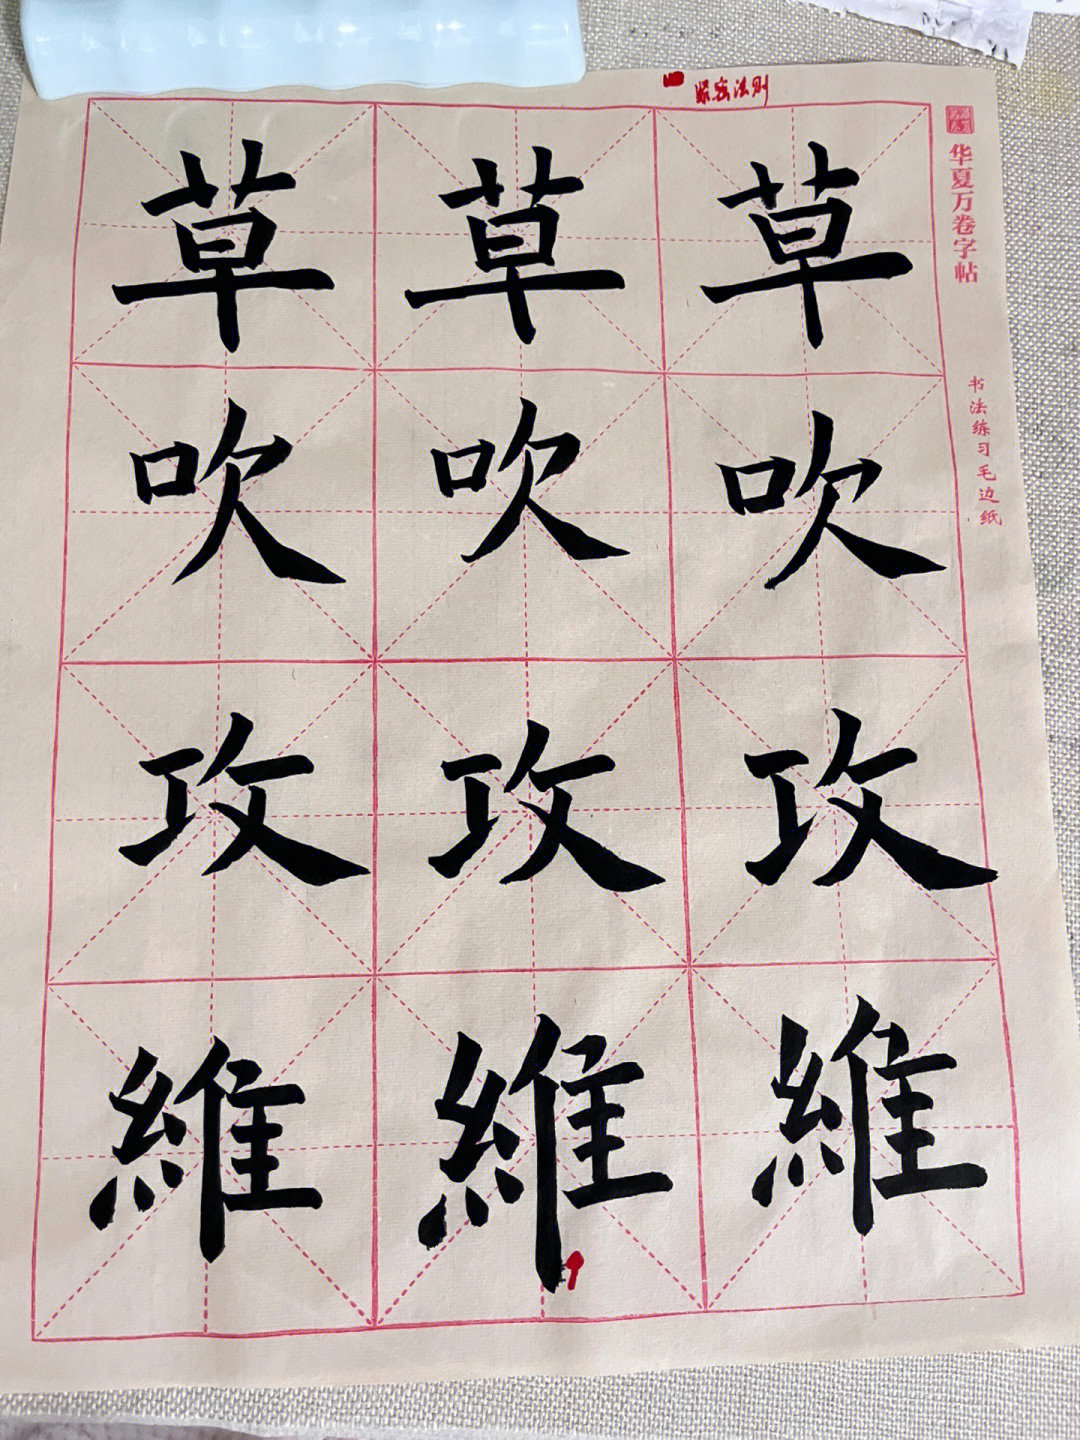 紧密法则
草草草
吹吹吹
攻攻攻
維維維
华夏万卷字帖
书法练习毛边纸